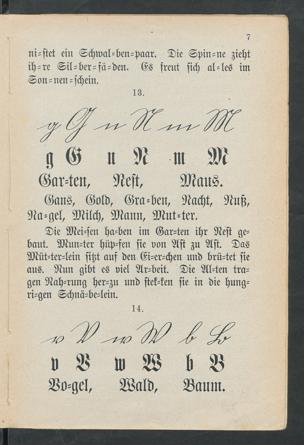 7
ni⸗stet ein Schwal⸗ben⸗paar. Die Spin⸗ne zieht
ih⸗re Sil⸗ber⸗fä⸗den. Es freut sich al⸗les im
Son⸗nen⸗schein.
13.
g G n N m M
g G n N m M
Gar⸗ten, Nest, Maus.
Gans, Gold, Gra⸗ben, Nacht, Nuß,
Na⸗gel, Milch, Mann, Mut⸗ter.
Die Mei⸗sen ha⸗ben im Gar⸗ten ihr Nest ge⸗
baut. Mun⸗ter hüp⸗fen sie von Ast zu Ast. Das
Müt⸗ter⸗lein sitzt auf den Ei⸗er⸗chen und brü⸗tet sie
aus. Nun gibt es viel Ar⸗beit. Die Al⸗ten tra⸗
gen Nah⸗rung her⸗zu und stek⸗ken sie in die hung⸗
ri⸗gen Schnä⸗be⸗lein.
14.
v V w W b B
v V w W b B
Vo⸗gel, Wald, Baum.